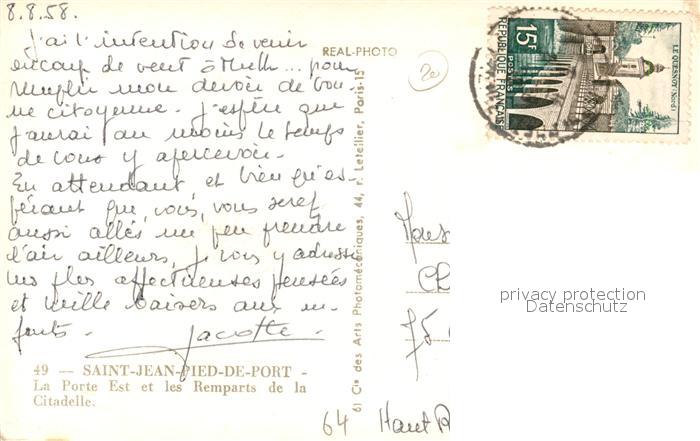 8.8.58.
J'ai l'intention de venir
en coup de vent à ... pour
remplir mon devoir de bon-
ne citoyenne. J'espère que
j'aurai au moins le temps
de vous y apercevoir.
En attendant et bien qu'es-
pérant que, vous, vous serez
aussi allés un peu prendre
l'air ailleurs, je vous y adresse
mes plus affectueuses pensées
et mille baisers aux en-
fants.
Jacotte
49 — SAINT-JEAN-PIED-DE-PORT -
La Porte Est et les Remparts de la
Citadelle.
REAL-PHOTO
61 Cie des Arts Photomécaniques, 44, r. Letellier, Paris-15
20
15F
POSTES
RÉPUBLIQUE FRANÇAISE
LE QUESNOY (Nord)
75
privacy protection
Datenschutz
64 Haut